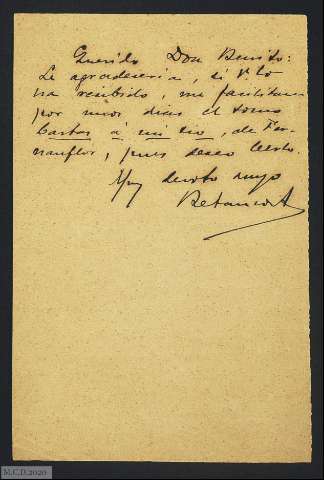 Querido Don Benito:
Le agradeceria, si V. lo
ha recibido, me facilitara
por unos dias el tomo
Cartas á mi tio, de Fer-
nanflor, pues deseo leerlo.
Muy devoto suyo
Betancort
M.C.D.2020